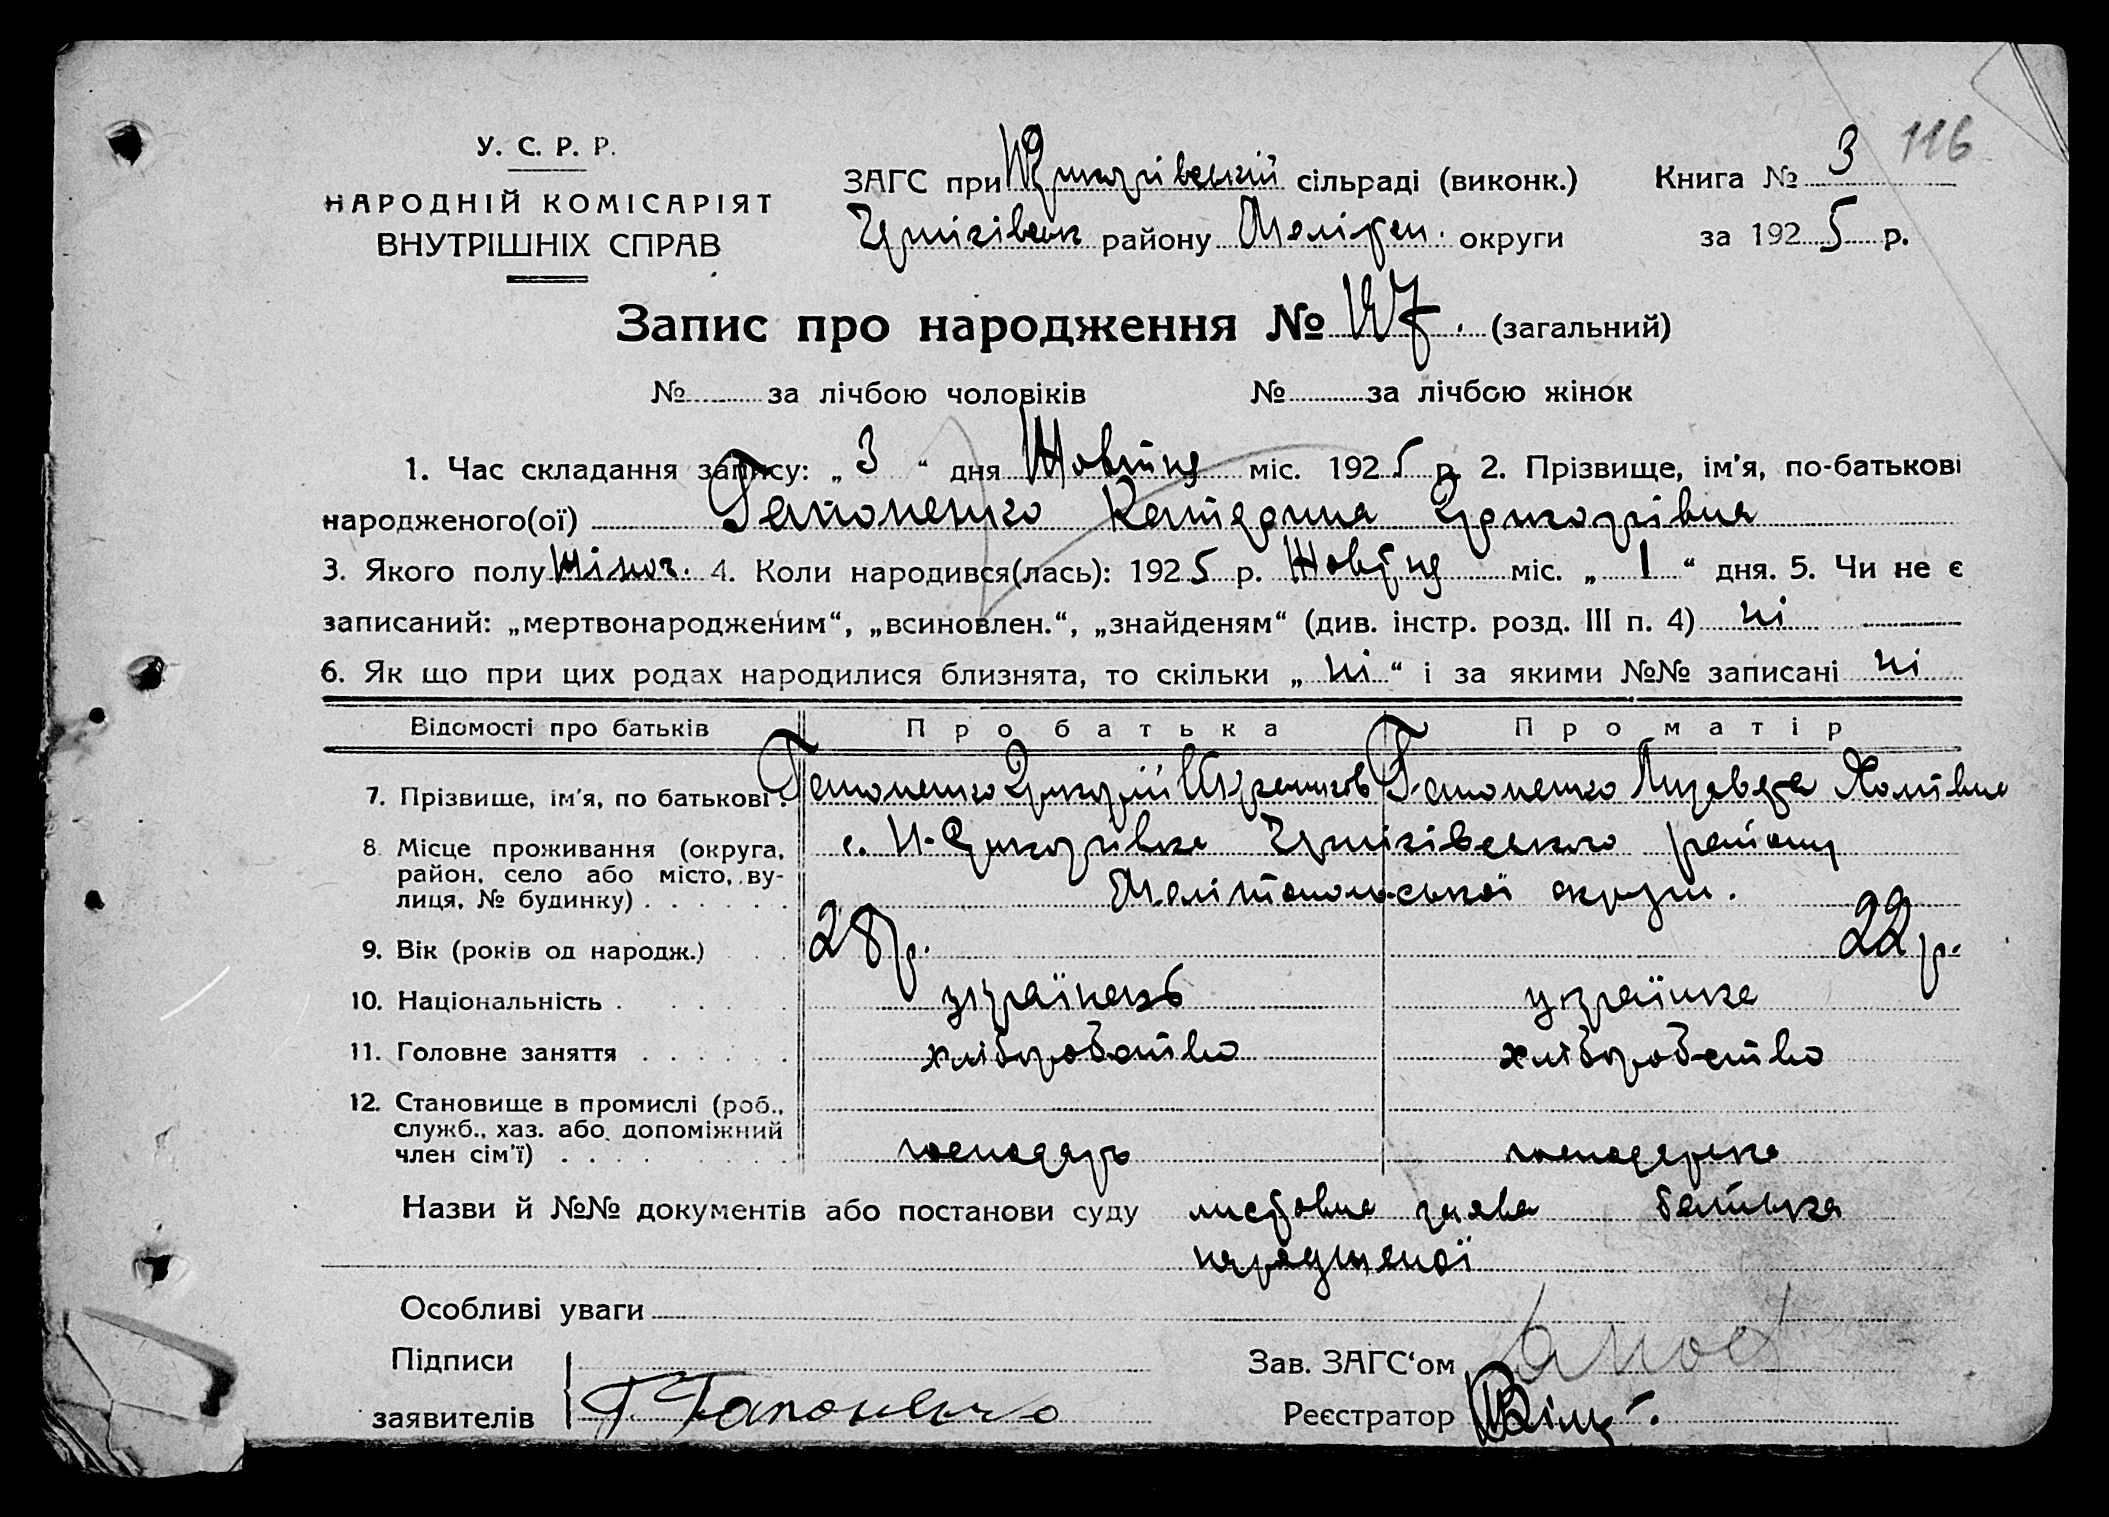 116
У. С. Р. Р.
НАРОДНІЙ КОМІСАРІЯТ
ВНУТРІШНІХ СПРАВ
ЗАГС при Н Григорівській сільраді (виконк.)
Книга № 3
Чернігівськ району Мелітоп. округи
за 1925 р.
Запис про народження № (загальний)
№ за лічбою чоловіків № за лічбою жінок
1. Час складання запису: „ 3 “ дня Жовтня міс. 1925 р. 2. Прізвище, ім’я, по-батькові
народженого(ої) Гапоненко Катерина Григорівна
3. Якого полу Жіноч. 4. Коли народився(лась): 1925 р. Жовтня міс. „ 1 “ дня. 5. Чи не є
записаний: „мертвонародженим“, „всиновлен.“, „знайденям“ (див. інстр. розд. III п. 4) ні
6. Як що при цих родах народилися близнята, то скільки „ ні “ і за якими №№ записані ні
Відомості про батьків Про батька Про матір
7. Прізвище, ім’я, по батькові Гапоненко Григорій Гапоненко Лизавета Хомівна
8. Місце проживання (округа, район, село або місто, вулиця, № будинку) с. Н-Григорівка Чернігівського району
Мелітопольської округи.
9. Вік (років од народж.) 28 р. 22 р.
10. Національність українець українка
11. Головне заняття хліборобство хліборобство
12. Становище в промислі (роб., служб., хаз. або допоміжний член сім’ї) господарь господарка
Назви й №№ документів або постанови суду заява батька
народженої
Особливі уваги
Підписи
заявителів Г Гапоненко
Зав. ЗАГС‘ом
Реєстратор